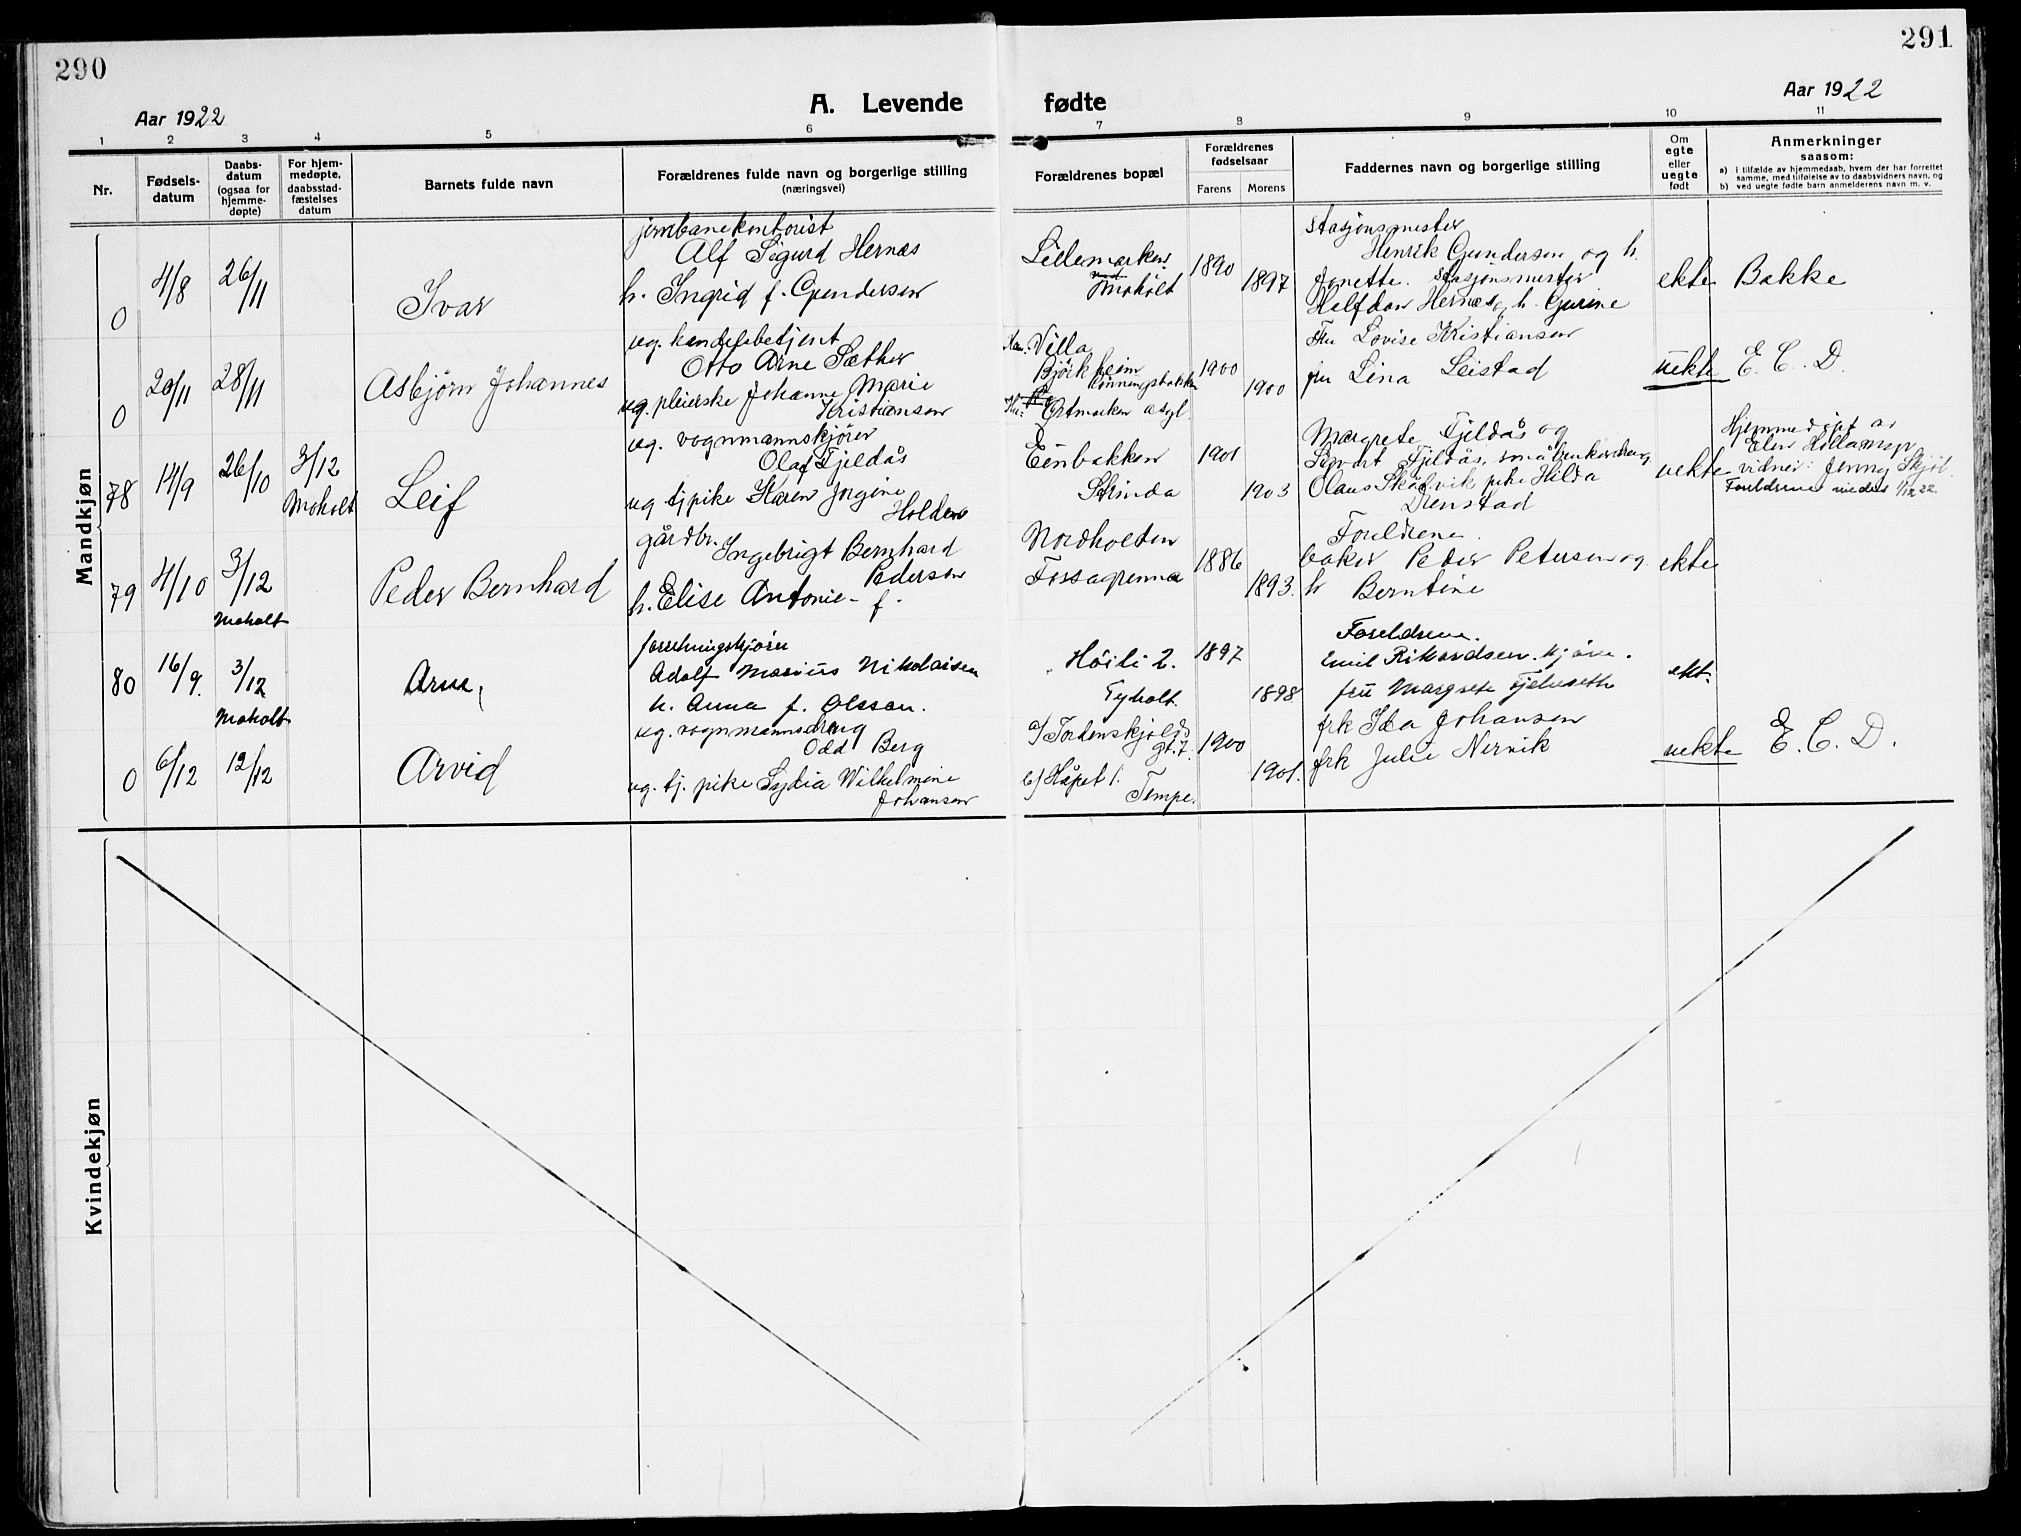 290
Aar 1922
A. Levende
1 2 3 4 5 6
Nr.
Fødsels-
datum
Daabs-
datum
(ogsaa for
hjemme-
døpte)
For hjem-
medøpte,
daabsstad-
fæstelses
datum
Barnets fulde navn
Forældrenes fulde navn og borgerlige stilling
(næringsvei)
Mandkjøn
0 4/8 26/11 Ivar
jernbanekontorist
Alf Sigurd Hernæs
h. Ingrid f. Gundersen
0 20/11 28/11 Asbjørn Johannes
ug. handelsbetjent
Otto Arne Sæther
ug. pleierske Johanne Marie
Kristiansen
78 14/9 26/10 3/12
Moholt
Leif
ug. vognmannskjører
Olaf Fjeldås
ug tj pike Karen Jorgine
Holden
79 4/10 3/12
Moholt
Peder Bernhard
gårdbr. Ingebrigt Bernhard
Pedersen
h. Elise Antonie - f -
80 16/9. 3/12
Moholt
Arne
forretningskjører
Adolf Marius Nikolaisen
h. Anna f. Olsson.
0 6/12 12/12 Arvid
ug. vognmannsdreng
Odd Berg
ug. tj. pike Lydia Wilhelmine
Johansen
Kvindekjøn
291
Aar 1922
fødte
7 8 9 10 11
Forældrenes bopæl
Forældrenes
fødselsaar
Farens Morens
Faddernes navn og borgerlige stilling
Om
egte
eller
uegte
født
Anmerkninger
saasom:
a) i tilfælde av hjemmedaab, hvem der har forrettet
samme, med tilføielse av to daabsvidners navn, og
b) ved uegte fødte barn anmelderens navn m. v.
Lillemarken
ved
Moholt
1890 1897
Stasjonsmester
Henrik Gundersen og h.
Jonette. Stasjonsmester
Halfdan Hernæs, h. Gurine
ekte Bakke
Villa
Bjørkheim
1900 1900
Fru Lovise Kristiansen
fru Lina Leistad
uekte E. C. D.
Einbakken
Strinda
1901 1903
Margrete Fjeldås og
Fjeldås,
Olaus pike Hilda
uekte
Hjemmedøpt av
vidner: Jenny
Foreldrene viedes 1/12 22.
Nordholten
1886 1893.
Foreldrene.
baker Peder Petersen og
h Berntine
ekte
Høili 2.
Tyholt.
1897 1898
Foreldrene.
Emil Rikardsen. kjører.
fru Margrete
ekt.
a/ Tordenskjolds
gt. 7.
b/ Håpet 1.
Tempe.
1900 1901.
frk Ida Johansen
frk Julie Nervik
uekte E. C. D.